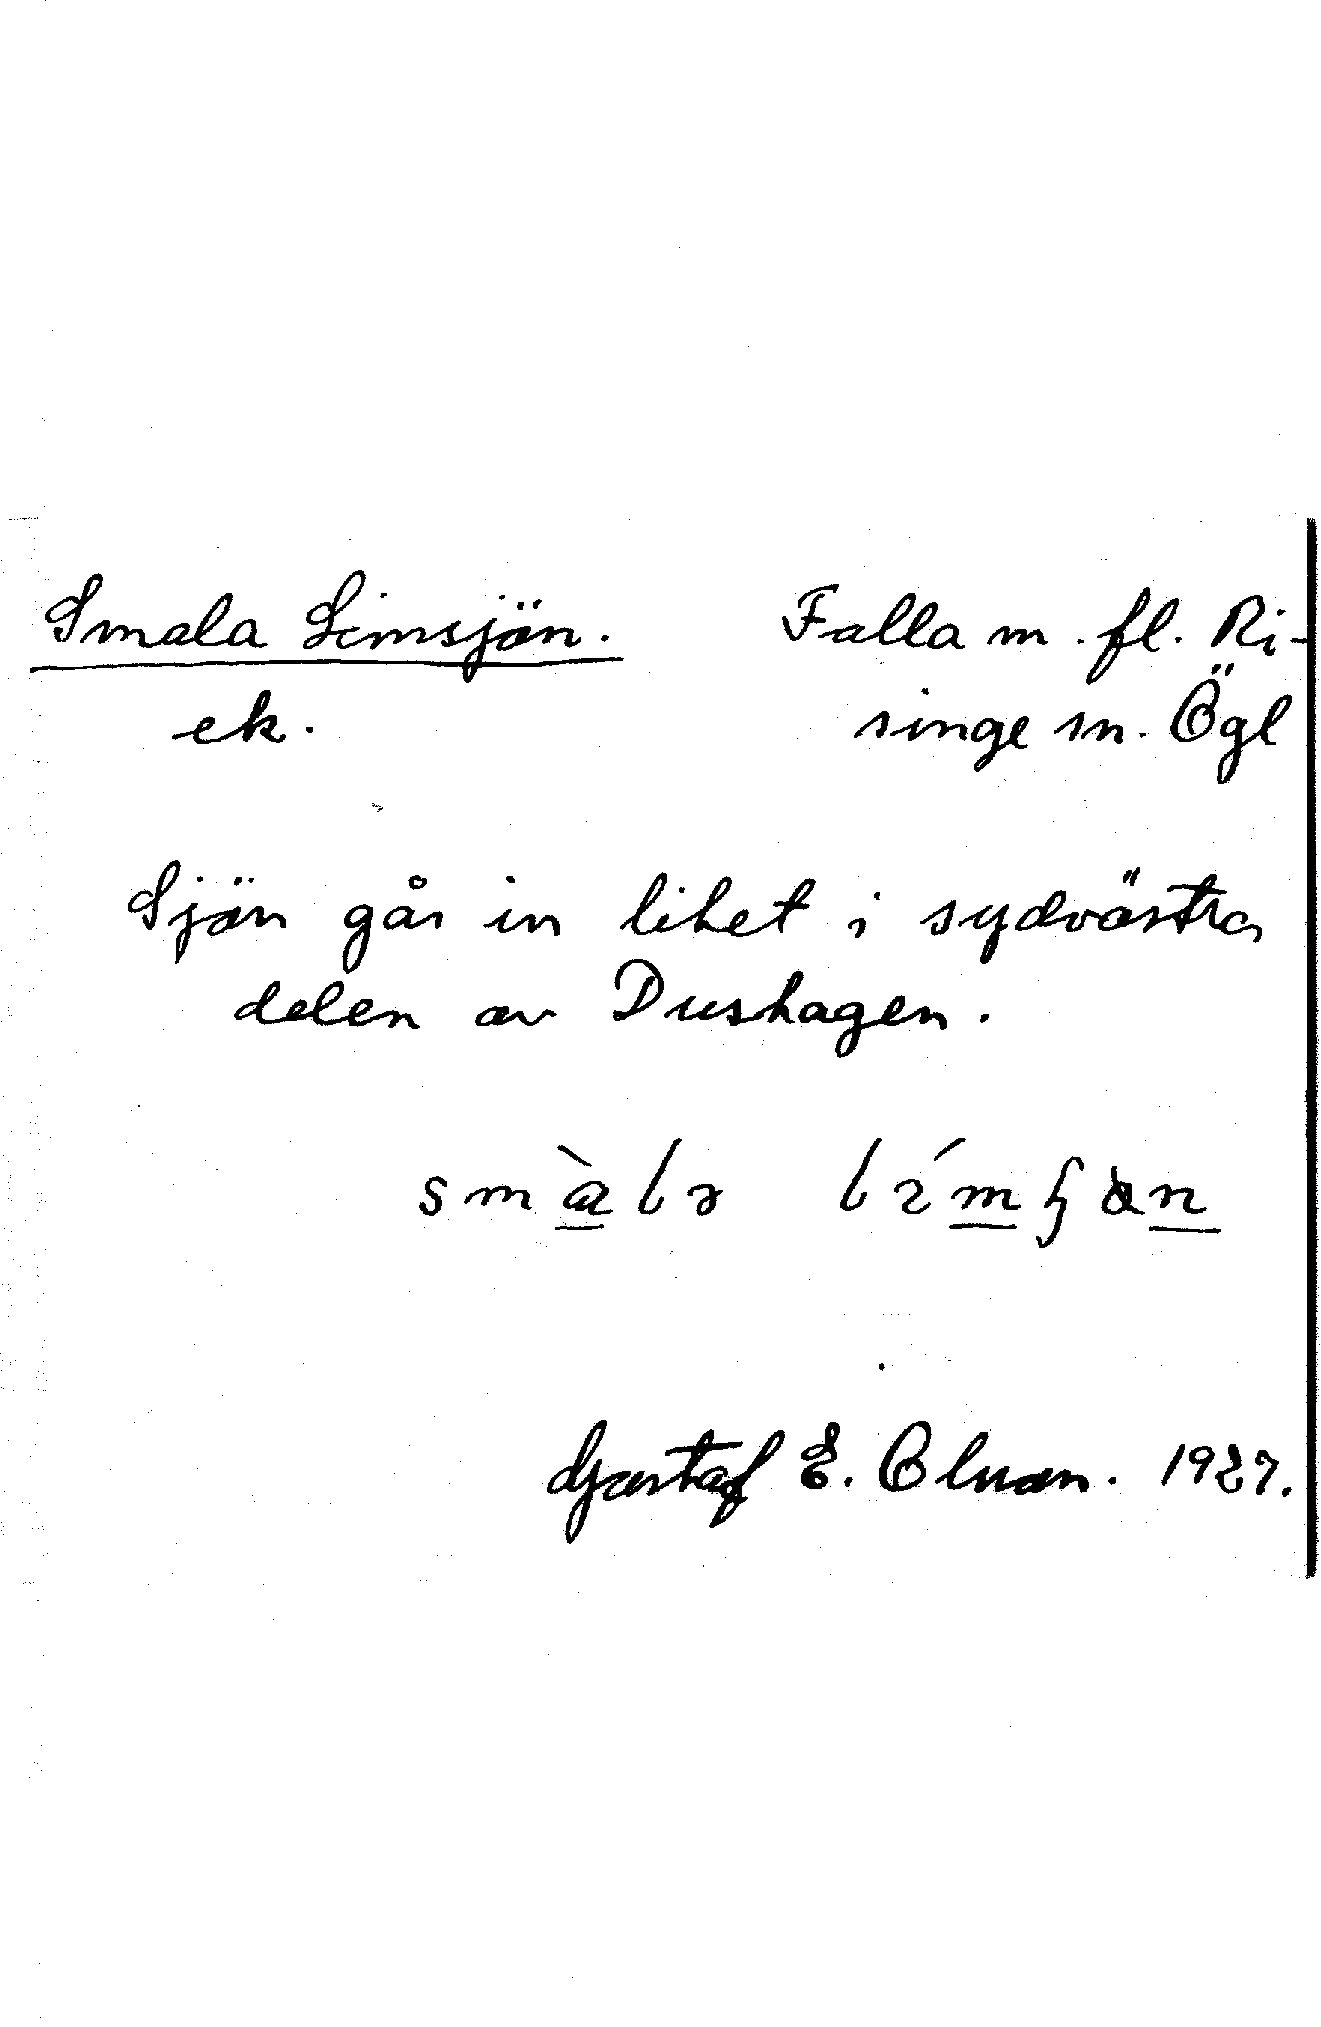 Smala Limsjön. Falla m. fl. Ri-
ek. singe sn. Ögl
Sjön går in litet i sydvästra
delen av Dushagen.
smàlə
Gustaf E. Bluan. 1927.